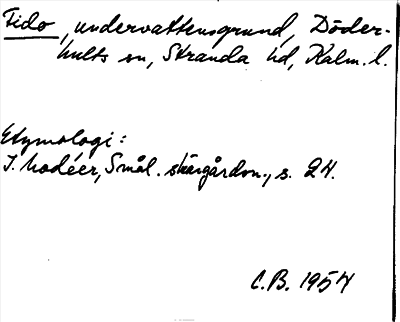 Fido, undervattensgrund, Döder-
hults sn, Stranda hd, Kalm. l.
Etymologi:
I. Modéer, Smål. skärgårdsn., s. 24.
C.B. 1954